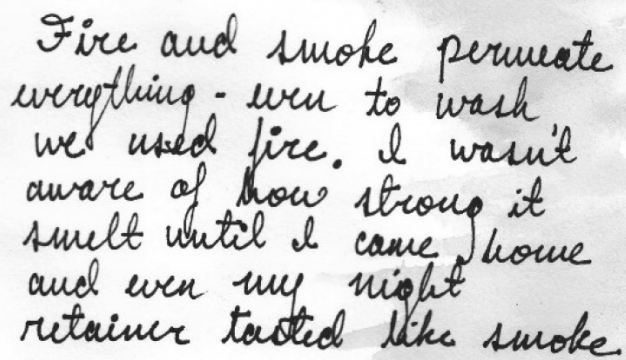 Fire and smoke permeate
everything - even to wash
we used fire. I wasn't
aware of how strong it
smelt until I came home
and even my night
retainer tasted like smoke